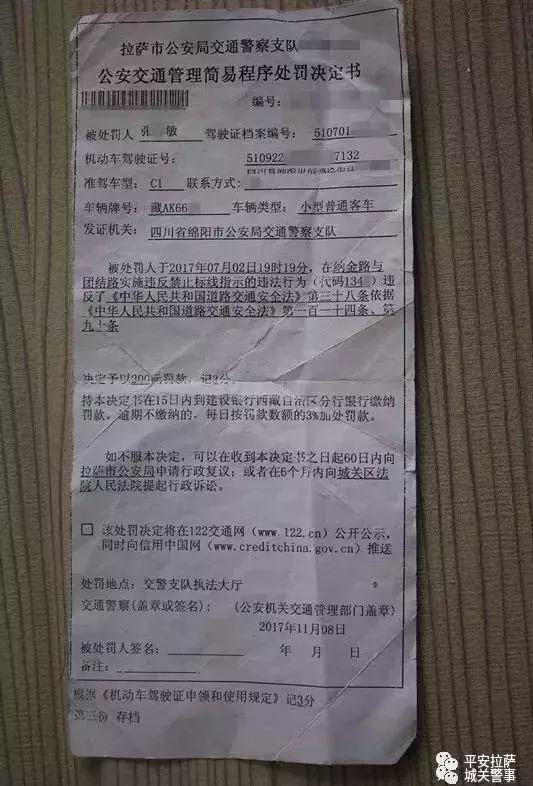 拉萨市公安局交通警察支队
公安交通管理简易程序处罚决定书
编号:
被处罚人 张 敏 驾驶证档案编号: 510701
机动车驾驶证号: 510922 7132
准驾车型: C1 联系方式:
车辆牌号: 藏AK66 车辆类型: 小型普通客车
发证机关: 四川省绵阳市公安局交通警察支队
被处罚人于2017年07月02日19时19分，在纳金路与
团结路实施违反禁止标线指示的违法行为(代码134 )违
反了《中华人民共和国道路交通安全法》第三十八条依据
《中华人民共和国道路交通安全法》第一百一十四条、第
九十条
决定予以200元罚款，记3分。
持本决定书在15日内到建设银行西藏自治区分行银行缴纳
罚款。逾期不缴纳的，每日按罚款数额的3%加处罚款。
如不服本决定，可以在收到本决定书之日起60日内向
拉萨市公安局申请行政复议；或者在6个月内向城关区法
院人民法院提起行政诉讼。
☐ 该处罚决定将在122交通网(www.122.cn)公开公示，
同时向信用中国网(www.creditchina.gov.cn)推送
处罚地点: 交警支队执法大厅
交通警察(盖章或签名): (公安机关交通管理部门盖章)
2017年11月08日
被处罚人签名: 年 月 日
备注:
根据《机动车驾驶证申领和使用规定》记3分
第三份 存档
平安拉萨
城关警事